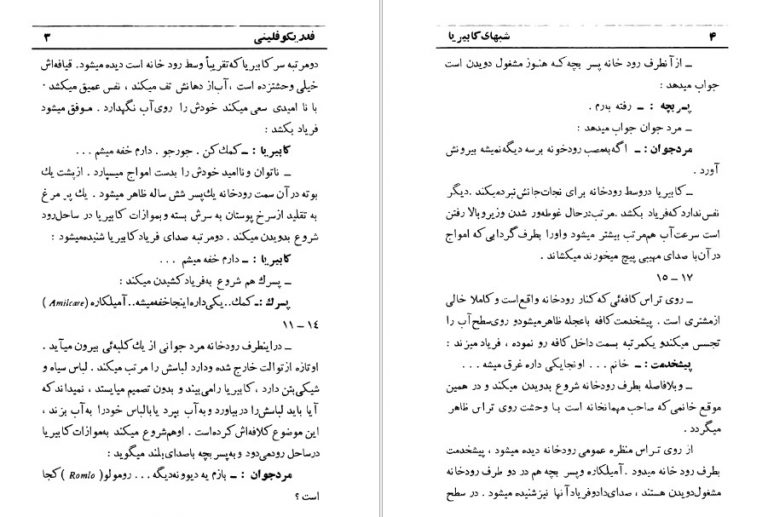 فدریکو فلینی ۳
دومرتبه سر کابیریا که تقریباً وسط رود خانه است دیده میشود. قیافه‌اش
خیلی وحشتزده است ، آب از دهانش تف میکند ، نفس عمیق میکشد
با نا امیدی سعی میکند خودش را روی آب نگهدارد . موفق میشود
فریاد بکشد :
کابیریا : ــ کمك کن . جورجو . دارم خفه میشم ...
ــ ناتوان و ناامید خودش را بدست امواج میسپارد . از پشت یك
بوته در آن سمت رودخانه یك پسر شش ساله ظاهر میشود . یك پر مرغ
به تقلید از سرخ پوستان به سرش بسته و بموازات کابیریا در ساحل رود
شروع بدویدن میکند . دومرتبه صدای فریاد کابیریا شنیده میشود :
کابیریا : ــ دارم خفه میشم ...
ــ پسرك هم شروع به فریاد کشیدن میکند :
پسرك :ــ کمك.. یکی داره اینجا خفه میشه.. آمیلکاره (Amilcare)
۱۱ – ۱۴
ــ دراینطرف رودخانه مرد جوانی از یك کلبه‌ئی بیرون میآید .
او تازه از توالت خارج شده و دارد لباسش را مرتب میکند . لباس سیاه و
شیکی بتن دارد ، کابیریا را می‌بیند و بدون تصمیم میایستد ، نمیداند که
آیا باید لباسش را در بیاورد و به آب بپرد یا با لباس خود را به آب بزند ،
این موضوع کلافه‌اش کرده است . او هم شروع میکند به موازات کابیریا
در ساحل رود می‌دود و به پسر بچه با صدای بلند میگوید :
مرد جوان : ــ بازم یه دیوونه دیگه ... رومولو ( Romlo ) کجا
است ؟
۴ شبهای کابیریا
ــ از آنطرف رود خانه پسر بچه که هنوز مشغول دویدن است
جواب میدهد :
پسر بچه : ــ رفته به رم .
ــ مرد جوان جواب میدهد :
مرد جوان : ــ اگه به مصب رودخونه برسه دیگه نمیشه بیرونش
آورد .
ــ کابیریا در وسط رودخانه برای نجات جانش نبرد میکند . دیگر
نفس ندارد که فریاد بکشد . مرتب در حال غوطه‌ور شدن و زیر و بالا رفتن
است سرعت آب هم مرتب بیشتر میشود و او را بطرف گردابی که امواج
در آن با صدای مهیبی پیچ میخورند میکشاند .
۱۵ – ۱۷
ــ روی تراس کافه‌ئی که کنار رودخانه واقع است و کاملا خالی
از مشتری است . پیشخدمت کافه با عجله ظاهر میشود و روی سطح آب را
تجسس میکند و یکمرتبه بسمت داخل کافه رو نموده ، فریاد میزند :
پیشخدمت : ــ خانم ... اونجا یکی داره غرق میشه ...
ــ و بلافاصله بطرف رودخانه شروع بدویدن میکند و در همین
موقع خانمی که صاحب مهمانخانه است با وحشت روی تراس ظاهر
میگردد .
از روی تراس منظره عمومی رودخانه دیده میشود ، پیشخدمت
بطرف رود خانه میدود . آمیلکاره و پسر بچه هم در دو طرف رودخانه
مشغول دویدن هستند ، صدای داد و فریاد آنها نیز شنیده میشود . در سطح